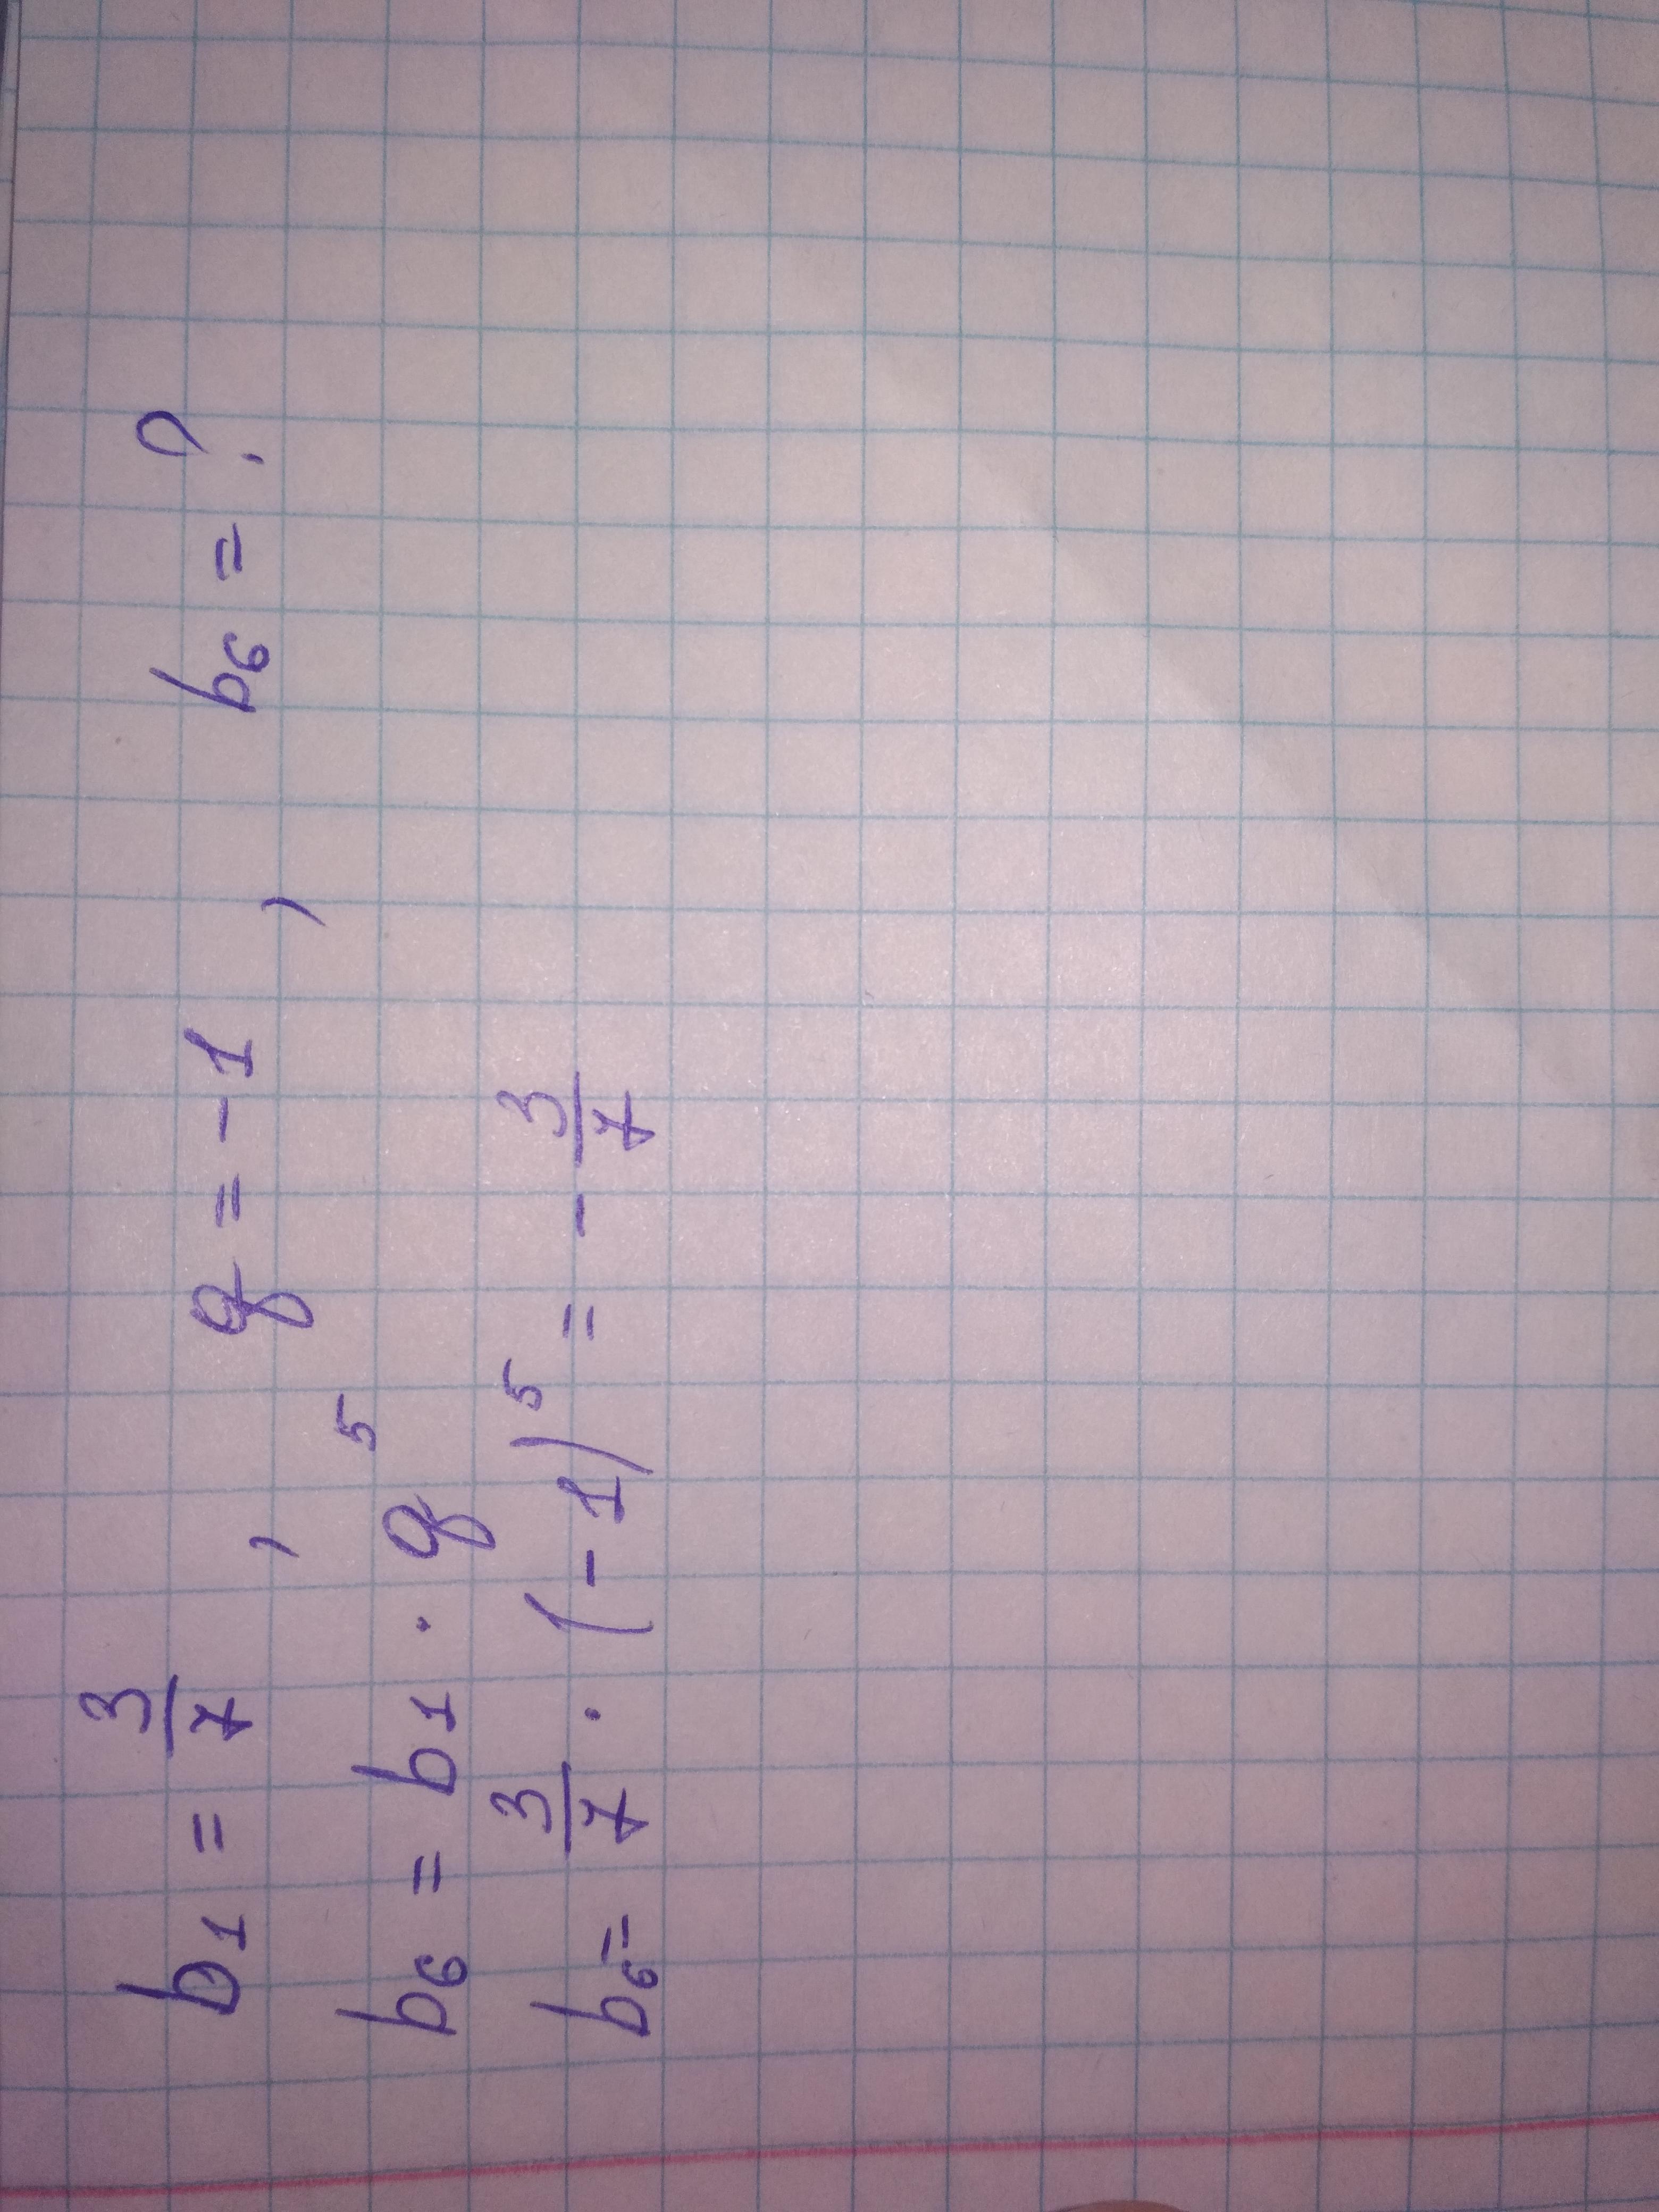 b₁ = 3/7 , q = -1 , b₆ = ?
b₆ = b₁ · q⁵
b₆ = 3/7 · (-1)⁵ = - 3/7